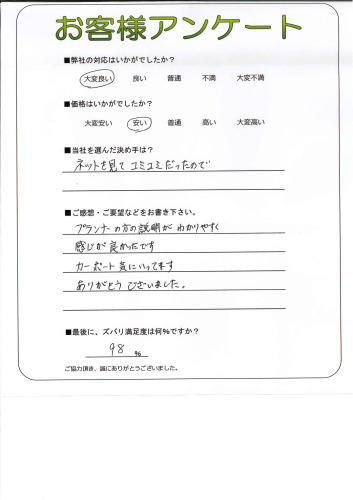 お客様アンケート
■弊社の対応はいかがでしたか？
大変良い 良い 普通 不満 大変不満
■価格はいかがでしたか？
大変安い 安い 普通 高い 大変高い
■当社を選んだ決め手は？
ネットを見て コミコミだったので
■ご感想・ご要望などをお書き下さい。
プランナーの方の説明が わかりやすく
感じが良かったです
カーポート気にいってます
ありがとう ございました。
■最後に、ズバリ満足度は何%ですか？
98 %
ご協力頂き、誠にありがとうございました。